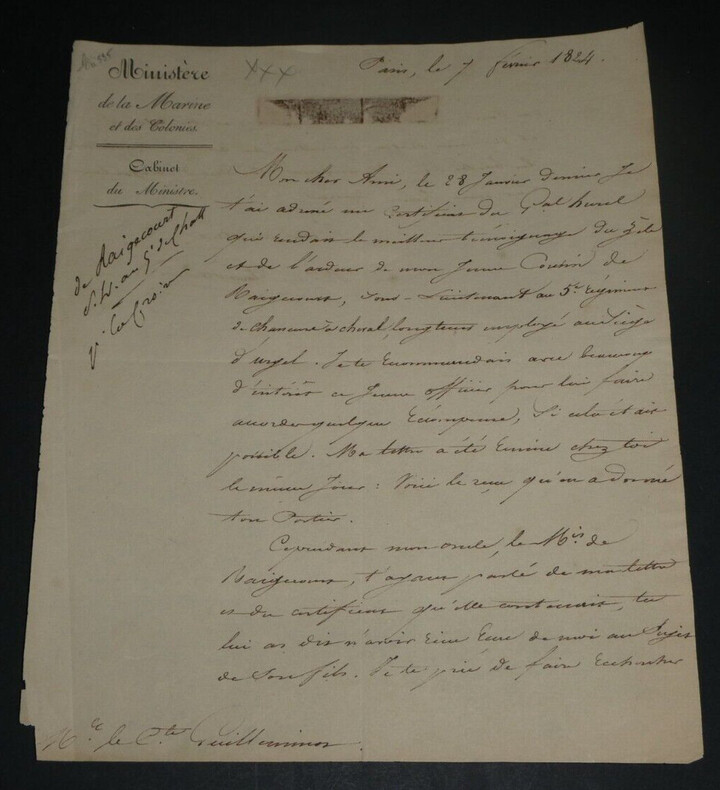 Ministère
de la Marine
et des Colonies.
Cabinet
du Ministre.
XXX
Paris, le 7 février 1824.
de Raigecourt
V. la Croix
Mon cher Ami, le 28 Janvier dernier Je
t'ai adressé un certificat du Gal hurel
qui rendait le meilleur témoignage du zèle
et de l'ardeur de mon Jeune Cousin de
Raigecourt, Sous-Lieutenant au 5e Régiment
de chasseurs à cheval, longtems employé au Siège
d'urgel. Je te Recommandais avec beaucoup
d'intérêt ce Jeune officier pour lui faire
accorder quelque Récompense, Si cela était
possible. Ma lettre a été Remise chez toi
le même Jour : Voici le reçu qu'en a donné
ton Portier.
Cependant mon oncle, le Mis de
Raigecourt, t'ayant parlé de ma lettre
et du certificat qu'elle contenait, tu
lui as dit n'avoir Rien Reçu de moi au Sujet
de Son fils. Je te prie de faire Rechercher
Mr le Cte Guilleminot.